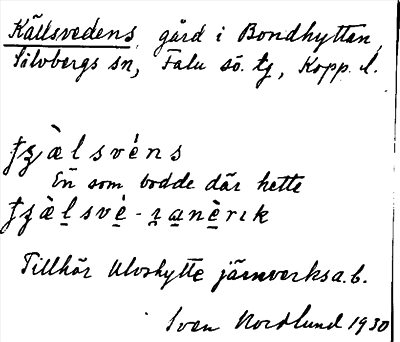 Källsvedens, gård i Bondhyttan,
Silvbergs sn, Falu sö. tg, Kopp. l.
ʈʒæ̀lsvéns
En som bodde där hette
ʈʒæ̀lsvè-ɪ̯anèrɪk
Tillhör Ulvshytte järnverksa.b.
Sven Nordlund 1930